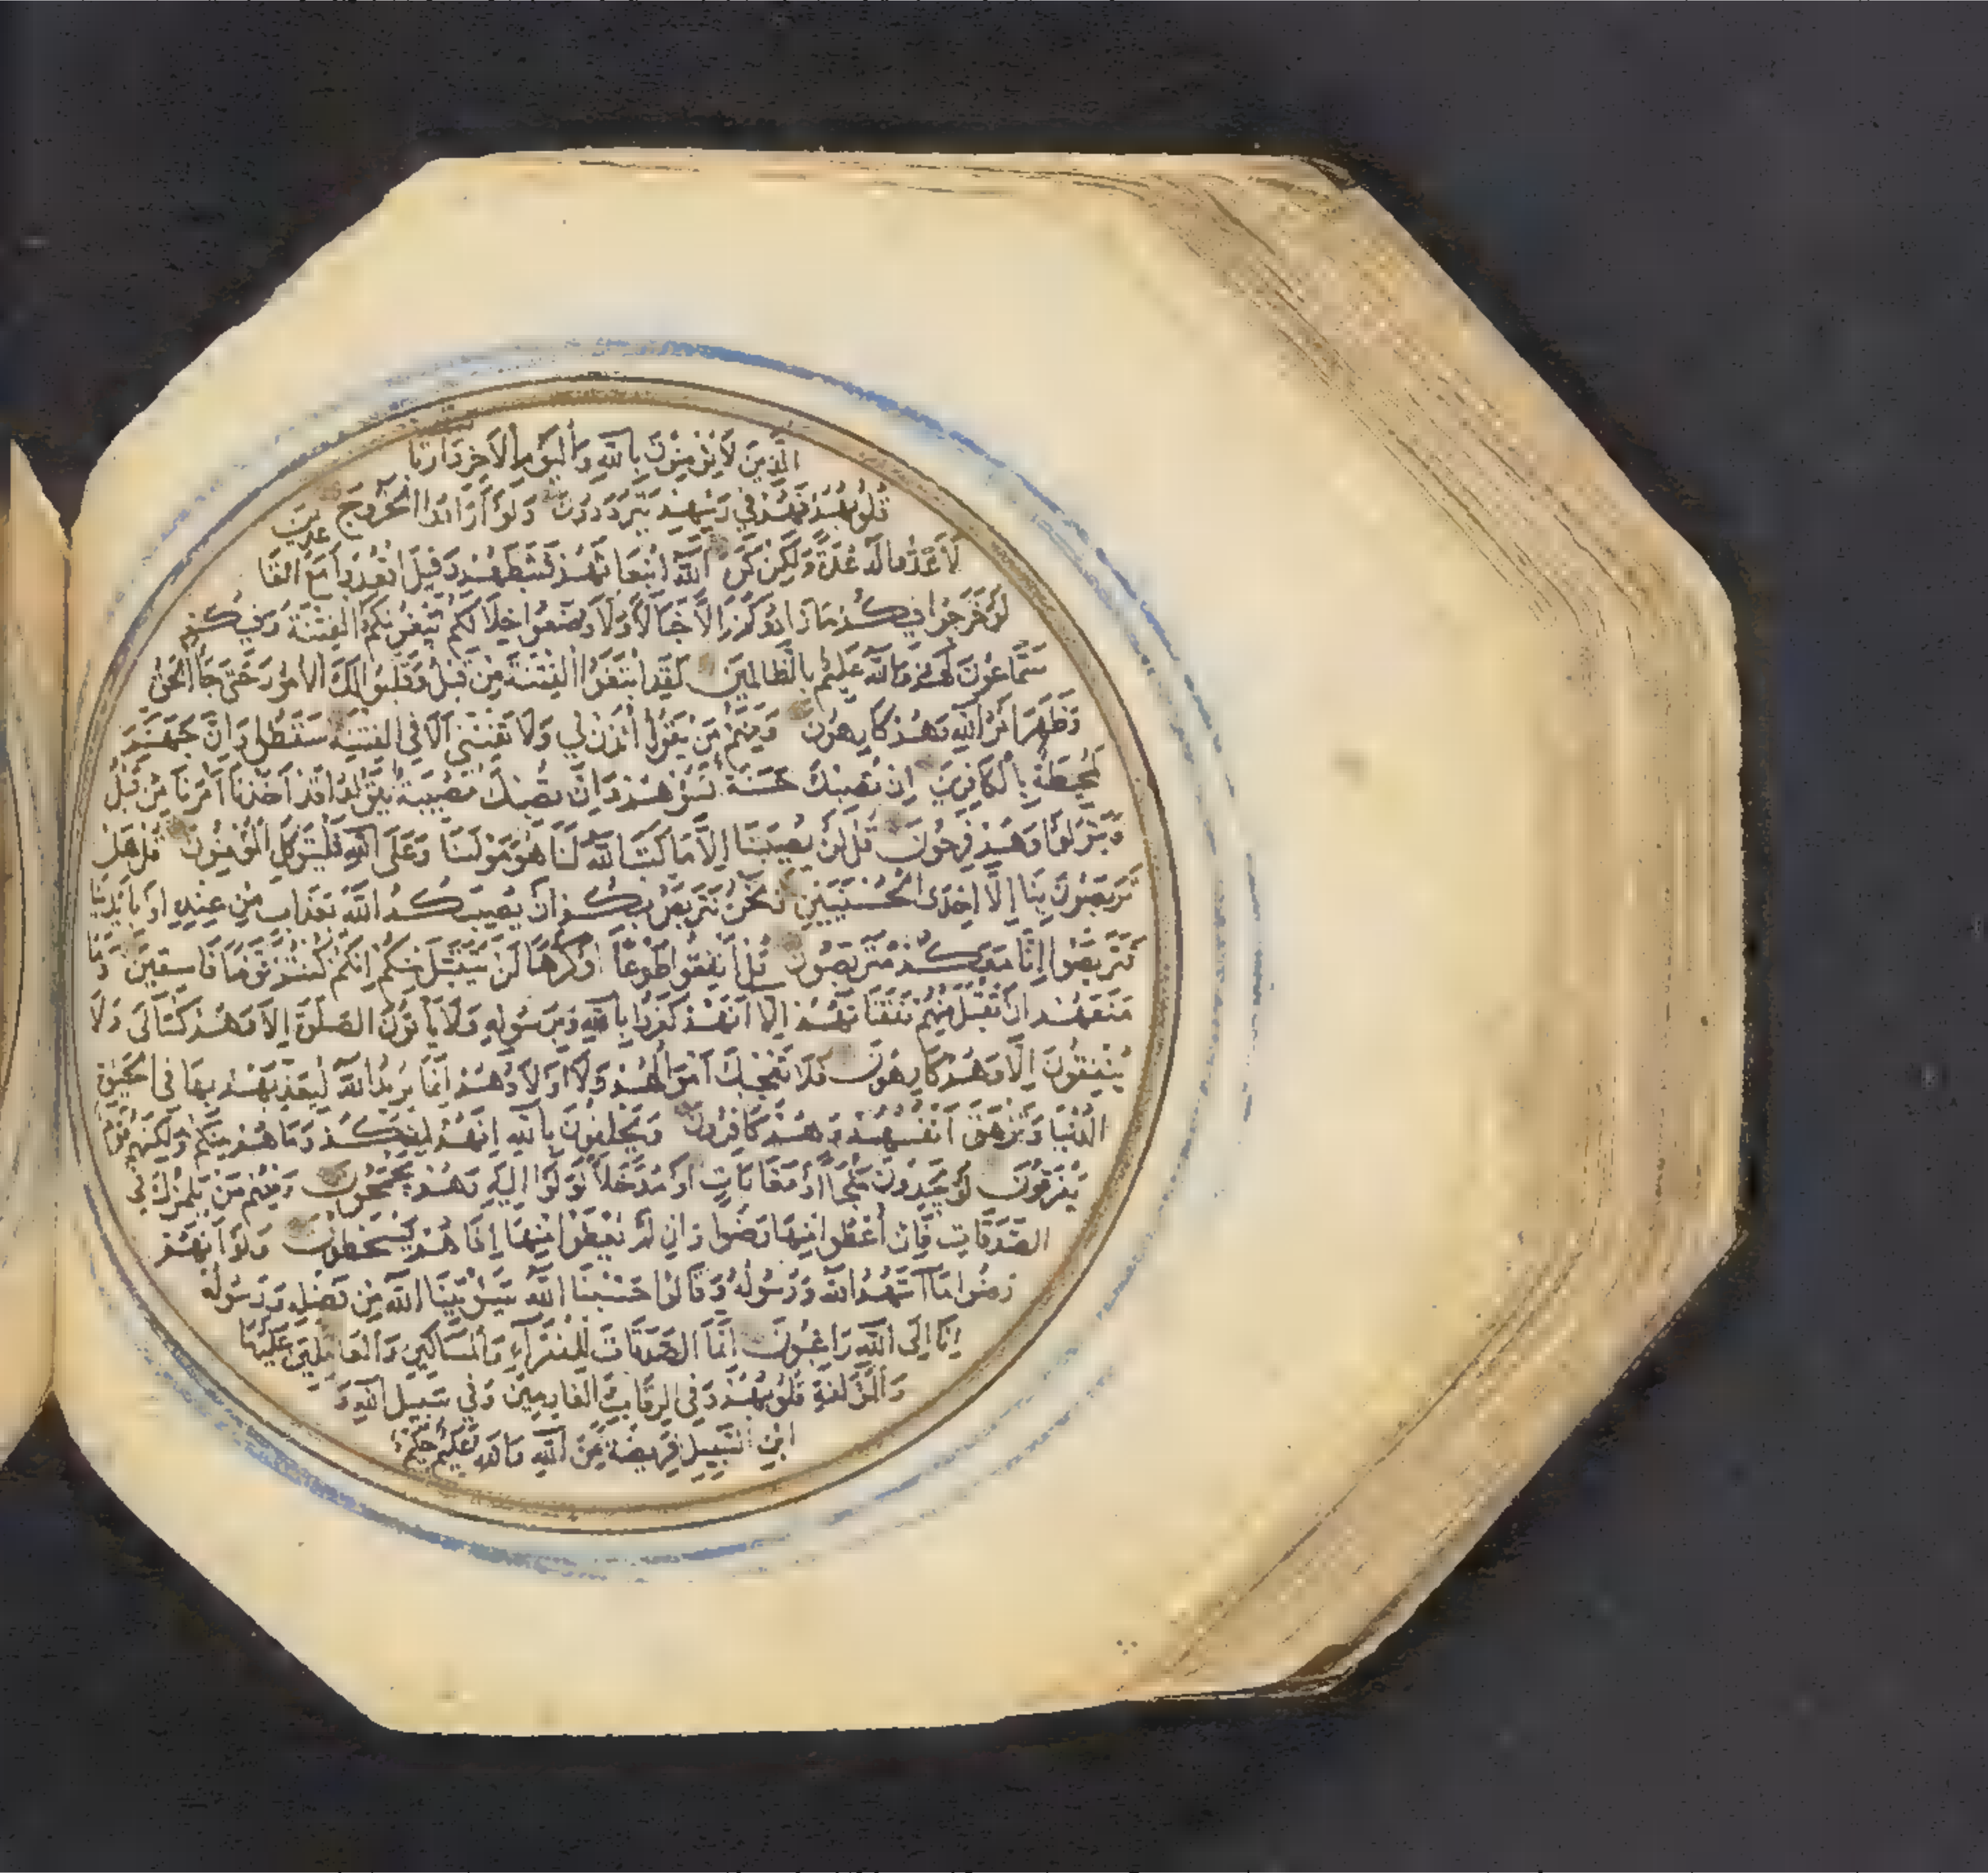 الَّذِينَ لَا يُؤْمِنُونَ بِاللَّهِ وَالْيَوْمِ الْآخِرِ وَارْتَا
قُلُوبُهُمْ فَهُمْ فِي رَيْبِهِمْ يَتَرَدَّدُونَ وَلَوْ أَرَادُوا الْخُرُوجَ
لَأَعَدُّوا لَهُ عُدَّةً وَلَكِنْ كَرِهَ اللَّهُ انْبِعَاثَهُمْ فَثَبَّطَهُمْ وَقِيلَ اقْعُدُوا مَعَ الْقَا
لَوْ خَرَجُوا فِيكُمْ مَا زَادُوكُمْ إِلَّا خَبَالًا وَلَأَوْضَعُوا خِلَالَكُمْ يَبْغُونَكُمُ الْفِتْنَةَ وَفِيكُمْ
سَمَّاعُونَ لَهُمْ وَاللَّهُ عَلِيمٌ بِالظَّالِمِينَ لَقَدِ ابْتَغَوُا الْفِتْنَةَ مِنْ قَبْلُ وَقَلَّبُوا لَكَ الْأُمُورَ حَتَّى جَاءَ الْحَقُّ
وَظَهَرَ أَمْرُ اللَّهِ وَهُمْ كَارِهُونَ وَمِنْهُمْ مَنْ يَقُولُ ائْذَنْ لِي وَلَا تَفْتِنِّي أَلَا فِي الْفِتْنَةِ سَقَطُوا وَإِنَّ جَهَنَّمَ
لَمُحِيطَةٌ بِالْكَافِرِينَ إِنْ تُصِبْكَ حَسَنَةٌ تَسُؤْهُمْ وَإِنْ تُصِبْكَ مُصِيبَةٌ يَقُولُوا قَدْ أَخَذْنَا أَمْرَنَا مِنْ قَبْلُ
وَيَتَوَلَّوْا وَهُمْ فَرِحُونَ قُلْ لَنْ يُصِيبَنَا إِلَّا مَا كَتَبَ اللَّهُ لَنَا هُوَ مَوْلَىنَا وَعَلَى اللَّهِ فَلْيَتَوَكَّلِ الْمُؤْمِنُونَ قُلْ هَلْ
تَرَبَّصُونَ بِنَا إِلَّا إِحْدَى الْحُسْنَيَيْنِ وَنَحْنُ نَتَرَبَّصُ بِكُمْ أَنْ يُصِيبَكُمُ اللَّهُ بِعَذَابٍ مِنْ عِنْدِهِ أَوْ بِأَيْدِينَا
فَتَرَبَّصُوا إِنَّا مَعَكُمْ مُتَرَبِّصُونَ قُلْ أَنْفِقُوا طَوْعًا أَوْ كَرْهًا لَنْ يُتَقَبَّلَ مِنْكُمْ إِنَّكُمْ كُنْتُمْ قَوْمًا فَاسِقِينَ وَمَا
مَنَعَهُمْ أَنْ تُقْبَلَ مِنْهُمْ نَفَقَاتُهُمْ إِلَّا أَنَّهُمْ كَفَرُوا بِاللَّهِ وَبِرَسُولِهِ وَلَا يَأْتُونَ الصَّلَوةَ إِلَّا وَهُمْ كُسَالَى وَلَا
يُنْفِقُونَ إِلَّا وَهُمْ كَارِهُونَ فَلَا تُعْجِبْكَ أَمْوَالُهُمْ وَلَا أَوْلَادُهُمْ إِنَّمَا يُرِيدُ اللَّهُ لِيُعَذِّبَهُمْ بِهَا فِي الْحَيَوةِ
الدُّنْيَا وَتَزْهَقَ أَنْفُسُهُمْ وَهُمْ كَافِرُونَ وَيَحْلِفُونَ بِاللَّهِ إِنَّهُمْ لَمِنْكُمْ وَمَا هُمْ مِنْكُمْ وَلَكِنَّهُمْ قَوْمٌ
يَفْرَقُونَ لَوْ يَجِدُونَ مَلْجَأً أَوْ مَغَارَاتٍ أَوْ مُدَّخَلًا لَوَلَّوْا إِلَيْهِ وَهُمْ يَجْمَحُونَ وَمِنْهُمْ مَنْ يَلْمِزُكَ فِي
الصَّدَقَاتِ فَإِنْ أُعْطُوا مِنْهَا رَضُوا وَإِنْ لَمْ يُعْطَوْا مِنْهَا إِذَا هُمْ يَسْخَطُونَ وَلَوْ أَنَّهُمْ
رَضُوا مَا آتَىهُمُ اللَّهُ وَرَسُولُهُ وَقَالُوا حَسْبُنَا اللَّهُ سَيُؤْتِينَا اللَّهُ مِنْ فَضْلِهِ وَرَسُولُهُ
إِنَّا إِلَى اللَّهِ رَاغِبُونَ إِنَّمَا الصَّدَقَاتُ لِلْفُقَرَاءِ وَالْمَسَاكِينِ وَالْعَامِلِينَ عَلَيْهَا
وَالْمُؤَلَّفَةِ قُلُوبُهُمْ وَفِي الرِّقَابِ وَالْغَارِمِينَ وَفِي سَبِيلِ اللَّهِ وَ
ابْنِ السَّبِيلِ فَرِيضَةً مِنَ اللَّهِ وَاللَّهُ عَلِيمٌ حَكِيمٌ